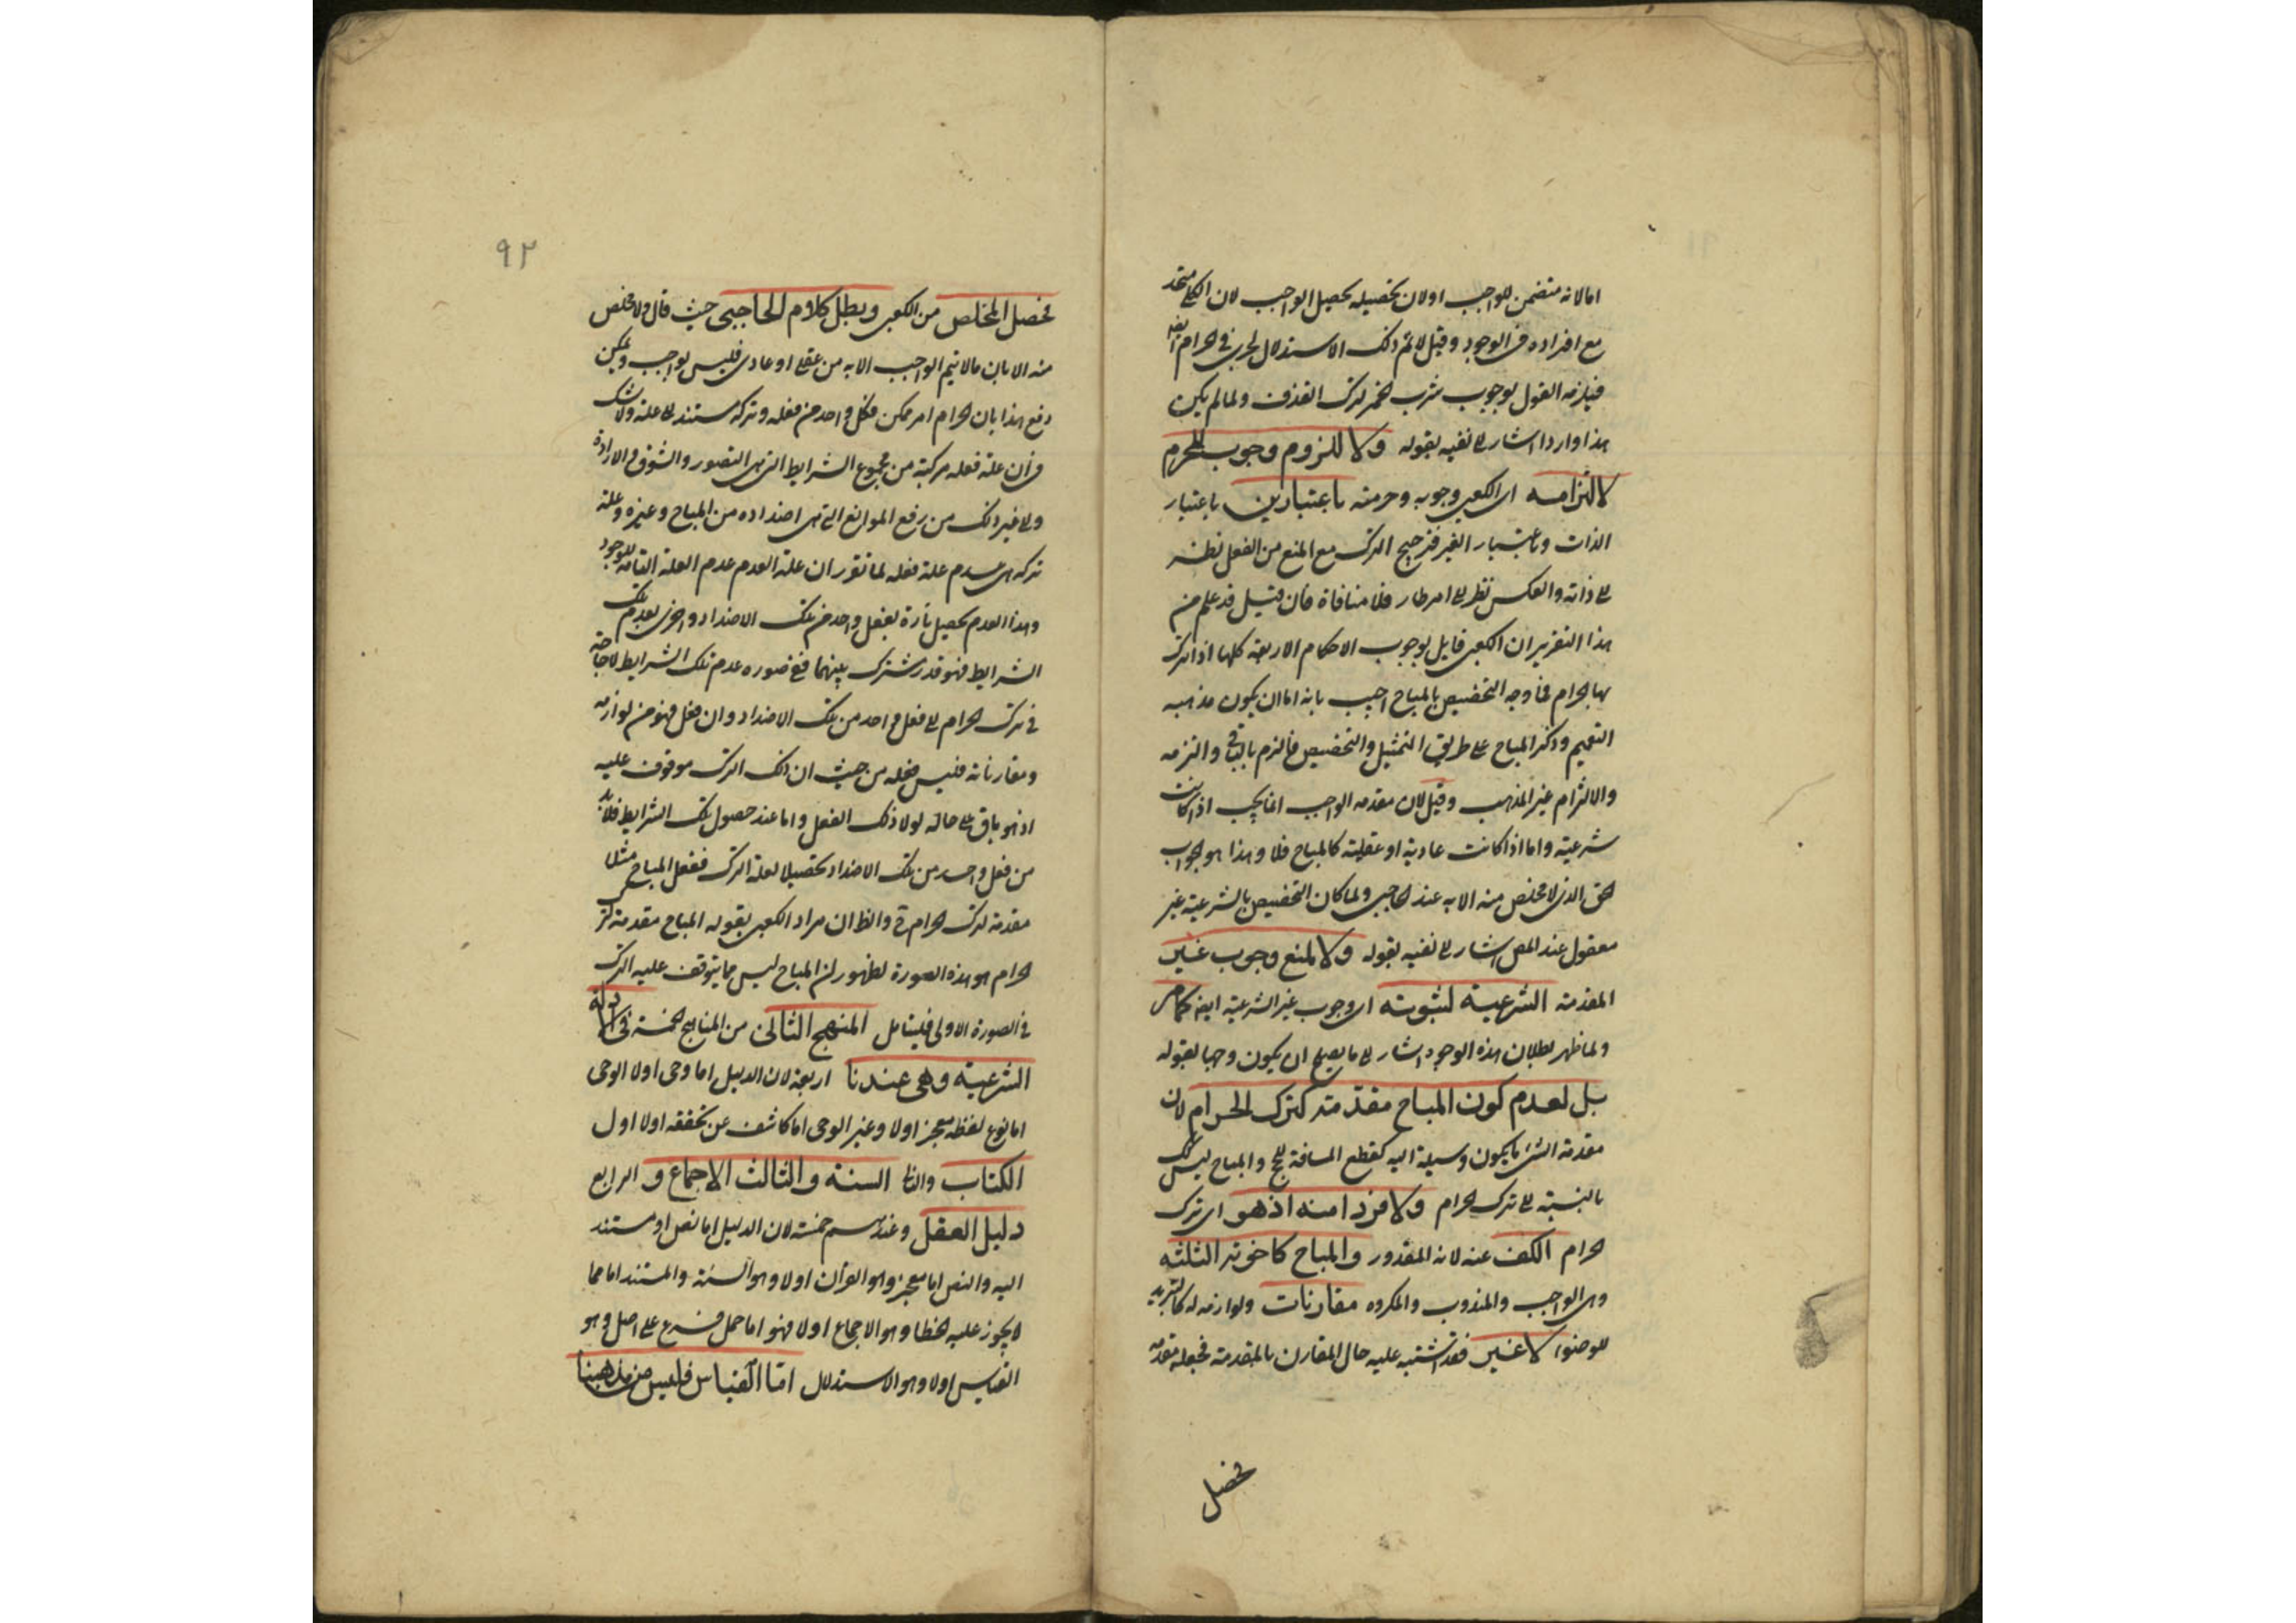 اما لانه متضمن للواجب او لان تحصيله تحصيل الواجب لان الكلي متحد
مع افراده فى الوجود وقيل لا ثم ذلك الاستدلال لجرى فى الحرام ايضا
فيلزمه القول بوجوب شرب الخمر لترك القذف ولما لم يكن
هذا واردا اشار الى نفيه بقوله ولا للزوم وجوب المحرم
لالتزامه اى الكعبى وجوبه وحرمته باعتبارين باعتبار
الذات وباعتبار الغير فترجيح الترك مع المنع من الفعل نظر
الى ذاته والعكس نظر الى امر طار فلا منافاة فان قيل قد علم من
هذا التقرير ان الكعبى قايل بوجوب الاحكام الاربعة كلها اذا ترك
بها الحرام فما وجه التخصيص بالمباح اجيب بانه اما ان يكون مذهبه
التعميم وذكر المباح على طريق التمثيل والتخصيص فالزم بالباقى والتزمه
والالتزام غير المذهب وقيل لان مقدمه الواجب انما يجب اذا كانت
شرعية واما اذا كانت عادية او عقلية كالمباح فلا وهذا هو الجواب
الحق الذى لا مخلص منه الا به عند الحاجبى ولما كان التخصيص بالشرعية غير
معقول عند المص اشار الى نفيه بقوله ولا لمنع وجوب غير
المقدمة الشرعية لثبوته اى وجوب غير الشرعية ايضا كما مر
ولما ظهر بطلان هذه الوجوه اشار الى ما يصح ان يكون وجها بقوله
بل لعدم كون المباح مقدمة لترك الحرام لان
مقدمة الشئ ما يكون وسيلة اليه كقطع المسافة للحج والمباح ليس كك
بالنسبة الى ترك الحرام ولا فردا منه اذ هو اى ترك
الحرام الكف عنه لانه المقدور والمباح كاخوته الثلثة
وهى الواجب والمندوب والمكروه مقارنات ولوازمه له
للوضوء لا غير فقد اشتبه عليه حال المقارن بالمقدمة فجعله مقدمه
فحصل
٩٢
فحصل المخلص من الكعبى وبطل كلام الحاجبى حيث قال ولا مخلص
منه الا بان ما لا يتم الواجب الا به من عقلى او عادى فليس بواجب ويمكن
دفع هذا بان الحرام امر ممكن فكل واحد من فعله وتركه مستند الى علة ولا شك
فى ان علة فعله مركبة من مجموع الشرايط التى هى التصور والشوق والارادة
والى غير ذلك من رفع الموانع التى هى اضداده من المباح وغيره وعلة
تركه هى عدم علة فعله لما تقرر ان علة العدم عدم العلة التامة للوجود
وهذا العدم يحصل تارة بفعل واحد من تلك الاضداد واخرى بعدم تلك
الشرايط فهو قدر مشترك بينهما ففى صوره عدم تلك الشرايط لا حاجة
فى ترك الحرام الى فعل واحد من تلك الاضداد وان فعل فهو من لوازمه
ومقارناته فليس فعله من حيث ان ذلك الترك موقوف عليه
اذ هو باق على حاله لولا ذلك الفعل واما عند حصول تلك الشرايط فلا بد
من فعل واحد من تلك الاضداد تحصيلا لعلة الترك ففعل المباح مثلا
مقدمة لترك الحرام ح والظ ان مراد الكعبى بقوله المباح مقدمة لترك
الحرام هو هذه الصورة لظهور ان المباح ليس مما يتوقف عليه الترك
فى الصورة الاولى فليتامل المنهج الثانى من المناهج الخمسة فى الادلة
الشرعية وهى عندنا اربعة لان الدليل اما وحى او لا الوحى
اما نوع لفظه معجز او لا وغير الوحى اما كاشف عن تحققه او لا اول
الكتاب والثا السنة والثالث الاجماع و الرابع
دليل العقل وعندهم خمسة لان الدليل اما نص او مستند
اليه والنص اما معجز وهو القرآن او لا وهو السنة والمستند اما مما
لا يجوز عليه الخطا وهو الاجماع او لا فهو اما حمل فرع على اصل وهو
القياس او لا وهو الاستدلال اما القياس فليس من مذهبنا